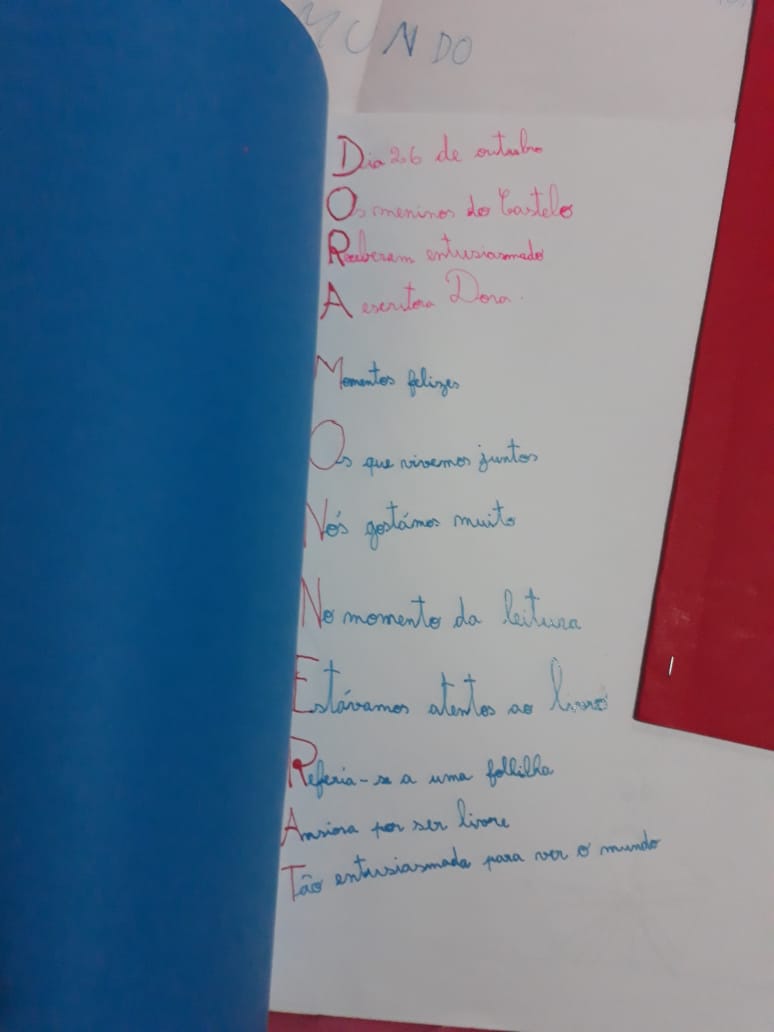 MUNDO
Dia 26 de outubro
Os meninos do Castelo
Receberam entusiasmado
A escritora Dora.
Momentos felizes
Os que vivemos juntos
Nós gostámos muito
No momento da leitura
Estávamos atentos ao livro
Referia-se a uma follilha
Ansiosa por ser livre
Tão entusiasmada para ver o mundo